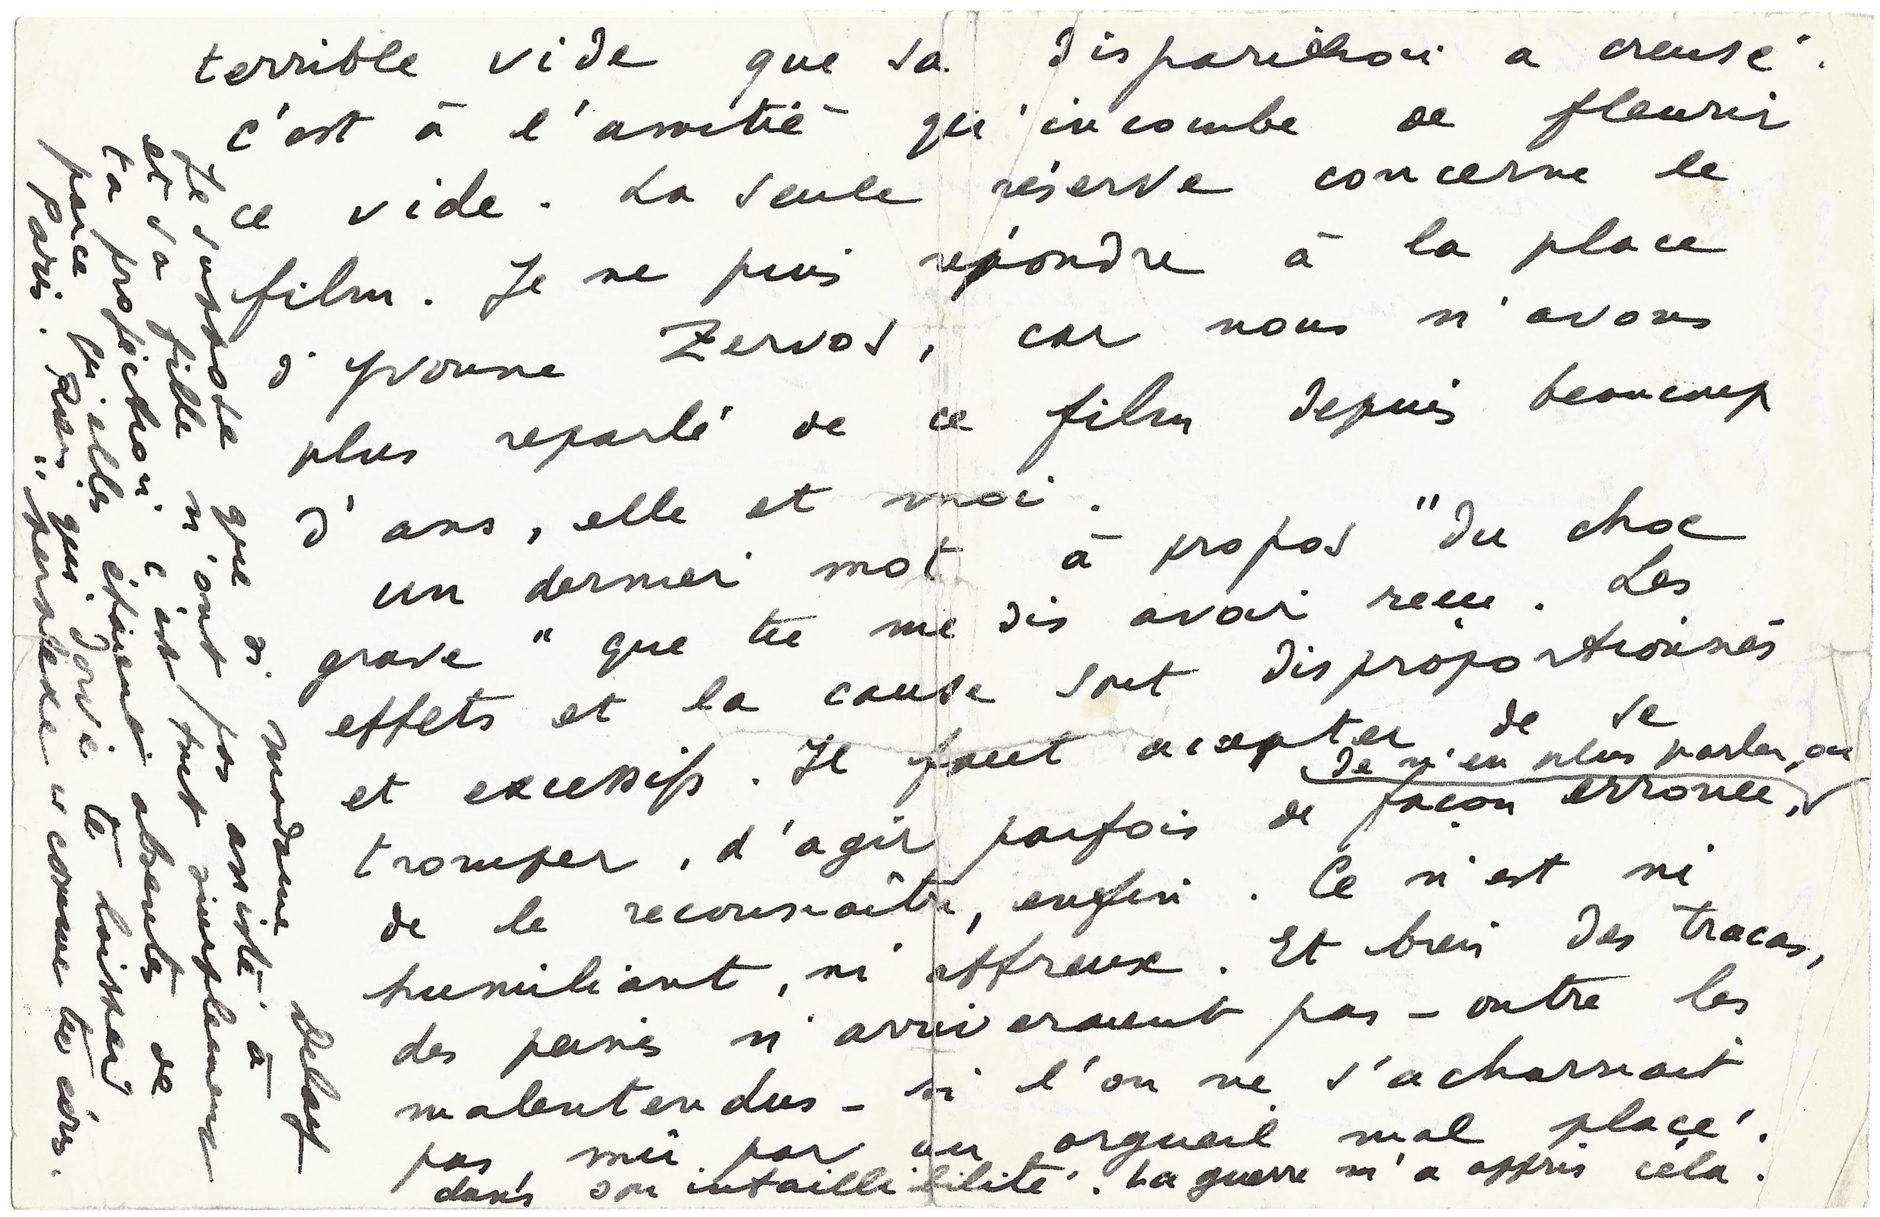 terrible vide que sa disparition a creusé.
c'est à l'amitié qu'incombe de fleurir
ce vide. La seule réserve concerne le
film. Je ne puis répondre à la place
d'Yvonne Zervos, car nous n'avons
plus reparlé de ce film depuis beaucoup
d'ans, elle et moi.
un dernier mot à propos "du choc
grave" que tu me dis avoir reçu. Les
effets et la cause sont disproportionnés
et excessifs. Il faut accepter de se
de n'en plus parler, ou
tromper, d'agir parfois de façon erronée,
de le reconnaître, enfin. Ce n'est ni
humiliant, ni affreux. Et bien des tracas,
des peines n'arriveraient pas - outre les
malentendus - si l'on ne s'acharnait
pas, mû par un orgueil mal placé.
dans son infaillibilité. La guerre m'a appris cela.
Je suppose que si madame Delay
et sa fille n'ont pas assisté à
ta projection c'est tout simplement
parce qu'elles étaient absentes de
Paris. Rien qui doive te laisser
"perplexe" comme tu écris.